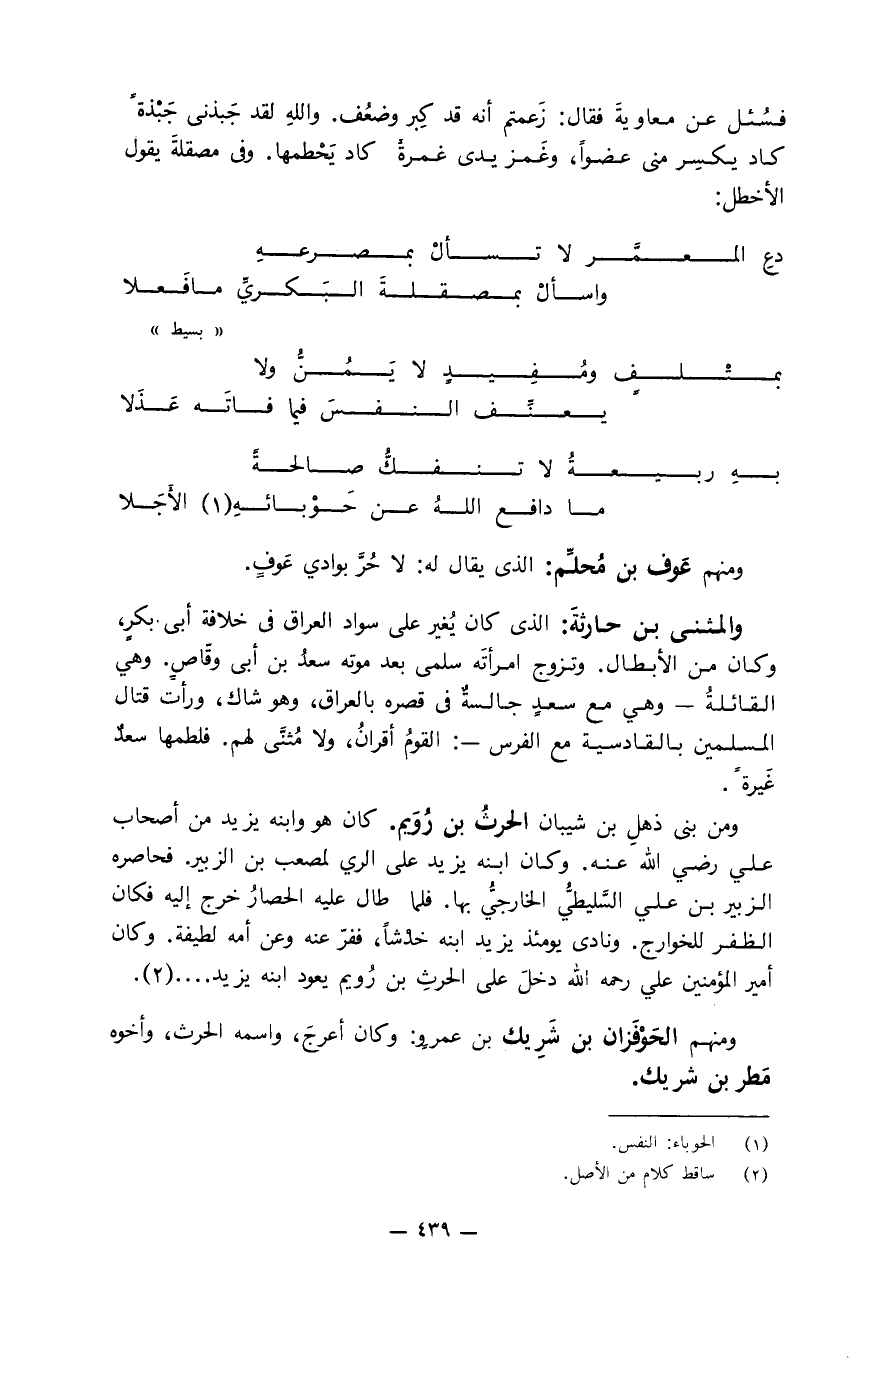 فسُئل عن معاويةَ فقال: زَعمتم أنه قد كِبر وضعُف. واللهِ لقد جَبذنى جَبْذة ً
كاد يكسِر منى عضواً، وغَمز يدى غمرةُ كاد يَحْطمها. وفى مصقلةَ يقول
الأخطل:
دعِ المعمَّر لا تسألْ بمصرعهِ
واسألْ بمصقلةَ البَكريِّ مافَعلا
« بسيط »
بمتْلفٍ ومُفِيدٍ لا يَمُنُّ ولا
يعنِّف النفسَ فيما فاتَه عَذَلا
بهِ ربيعةُ لا تنفكُّ صالحةً
ما دافع اللهُ عن حَوْبائهِ(١) الأَجَلا
ومنهم عَوف بن مُحلمِّ: الذى يقال له: لا حُرَّ بوادي عَوفٍ.
والمثنى بن حارثةَ: الذى كان يُغير على سواد العراق فى خلافة أبى بكرٍ،
وكان من الأبطال. وتزوج امرأتَه سلمى بعد موته سعدُ بن أبى وقَّاصٍ. وهي
القائلةُ — وهي مع سعدٍ جالسةٌ فى قصره بالعراق، وهو شاك، ورأت قتال
المسلمين بالقادسية مع الفرس —: القومُ أقرانُ، ولا مُثنَّى لهم. فلطمها سعدٌ
غَيرة ً.
ومن بنى ذهلِ بن شيبان الحرثُ بن رُوَيم. كان هو وابنه يزيد من أصحاب
علي رضي الله عنه. وكان ابنه يزيد على الري لمصعب بن الزبير. فحاصره
الزبير بن علي السَّليطيُّ الخارجيُّ بها. فلما طال عليه الحصارُ خرج إليه فكان
الظفر للخوارج. ونادى يومئذ يزيد ابنه خدْشاً، ففرّ عنه وعن أمه لطيفة. وكان
أمير المؤمنين علي رحمه الله دخلَ على الحرثِ بن رُويم يعود ابنه يزيد....(٢).
ومنهم الحَوْفَزان بن شَرِيك بن عمروٍ: وكان أعرجَ، واسمه الحرث، وأخوه
مَطر بن شريك.
(١) الحوباء: النفس.
(٢) ساقط كلام من الأصل.
— ٤٣٩ —